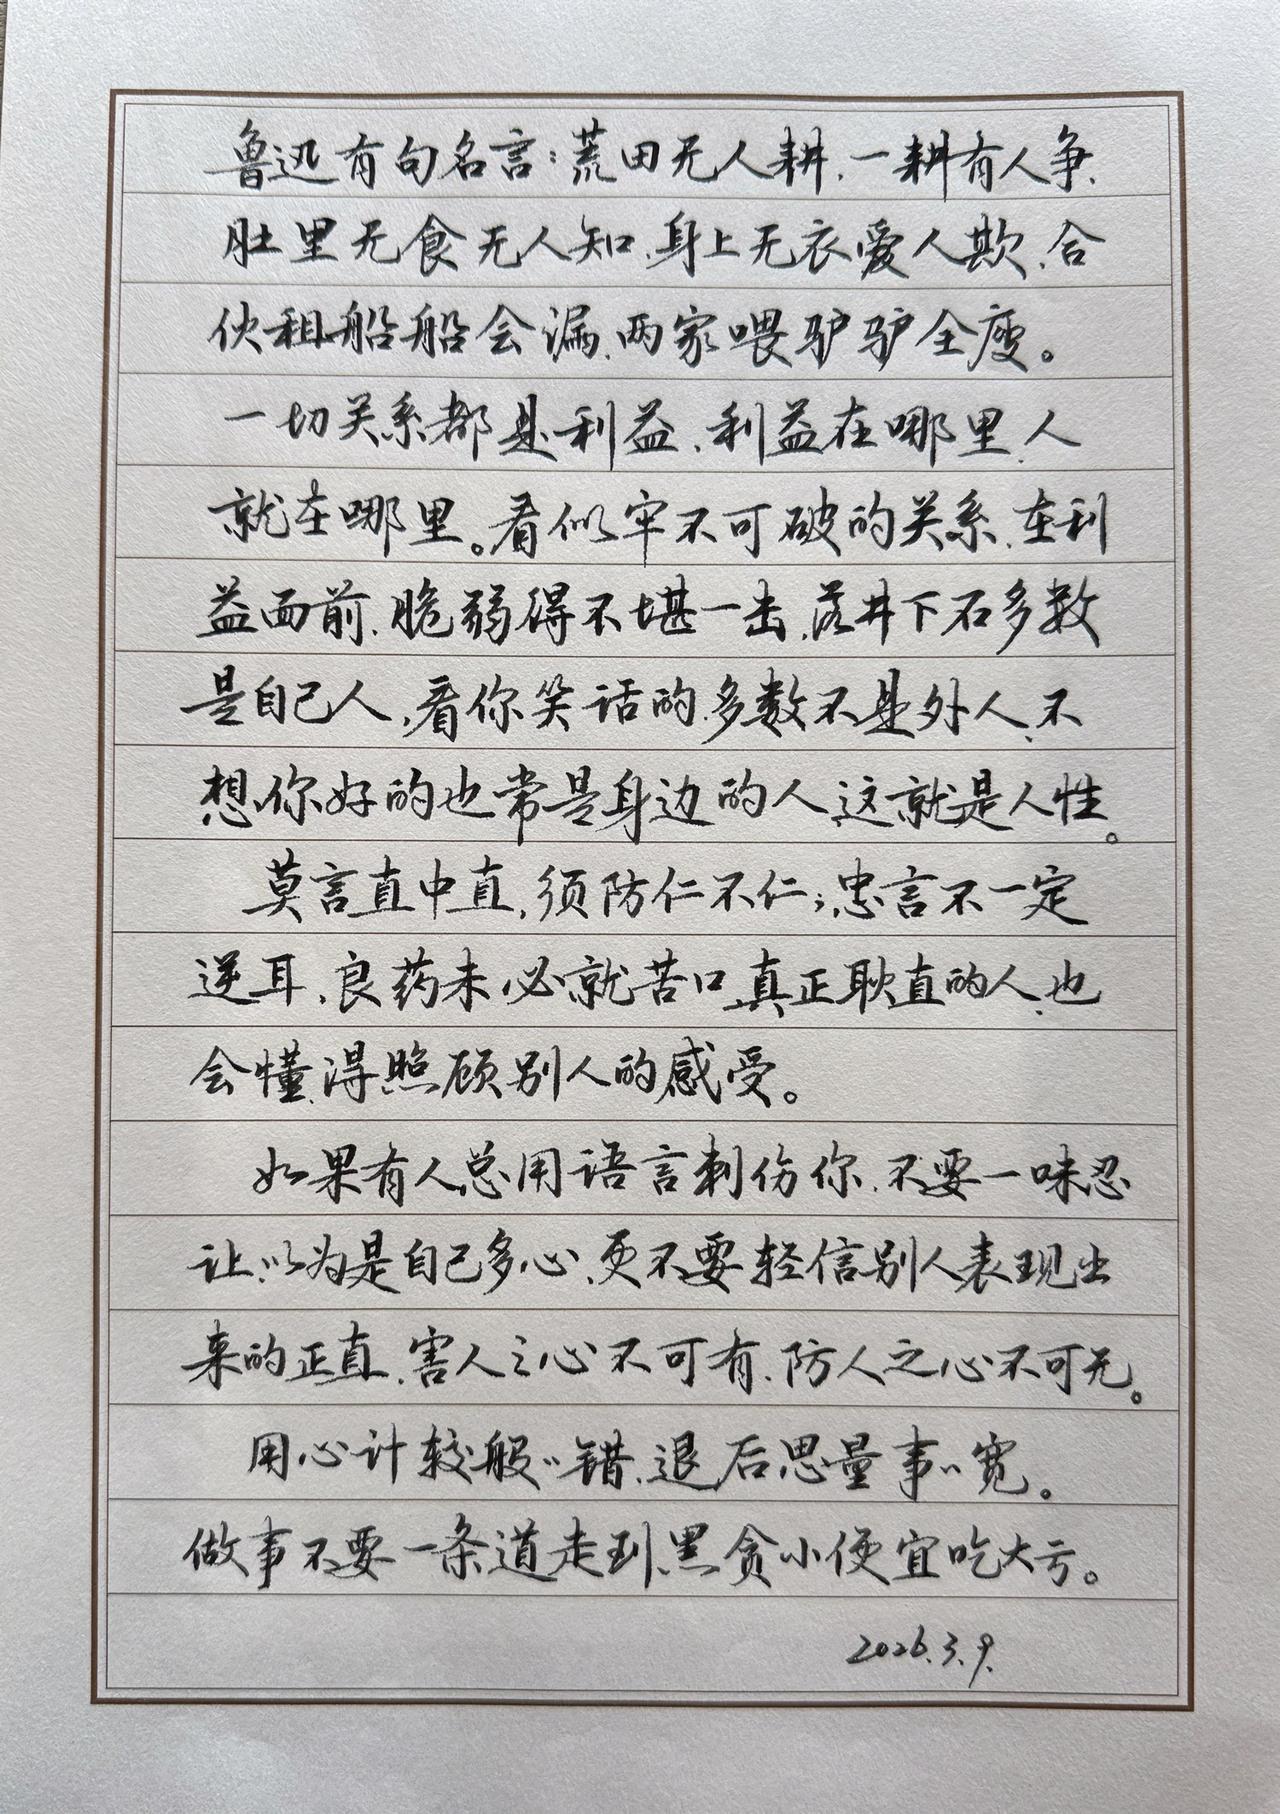 鲁迅有句名言：荒田无人耕，一耕有人争，
肚里无食无人知，身上无衣爱人欺，合
伙租船船会漏，两家喂驴驴全瘦。
一切关系都是利益，利益在哪里，人
就在哪里。看似牢不可破的关系，在利
益面前，脆弱得不堪一击，落井下石多数
是自己人，看你笑话的，多数不是外人，不
想你好的也常是身边的人，这就是人性。
莫言直中直，须防仁不仁；忠言不一定
逆耳，良药未必就苦口，真正耿直的人，也
会懂得照顾别人的感受。
如果有人总用语言刺伤你，不要一味忍
让，以为是自己多心，更不要轻信别人表现出
来的正直，害人之心不可有，防人之心不可无。
用心计较般〃错，退后思量事〃宽。
做事不要一条道走到黑，贪小便宜吃大亏。
2026.3.9.